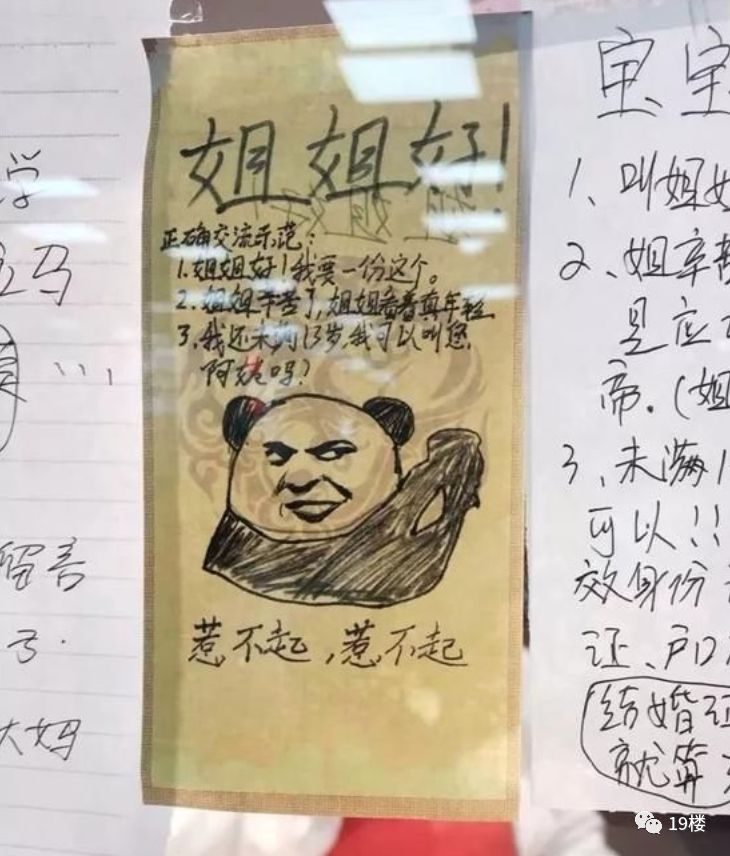 学
马
留言
子.
大妈
姐姐好!
正确交流示范:
1.姐姐好!我要一份这个。
2.姐姐辛苦了,姐姐看着真年轻
3.我还未满13岁,我可以叫您,
阿姨吗?
惹不起,惹不起
宝宝
1、叫姐姐
2、姐辛
是应
帝.(姐
3、未满1
可以!!
效身份
证、户口
结婚证
就算
19楼